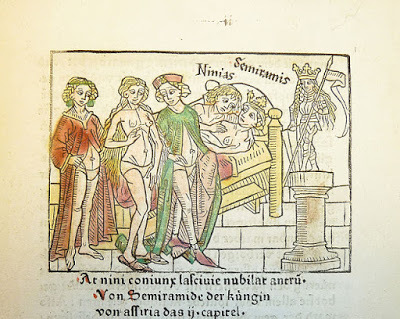 Ninias Semiramis
At nini coniunx lasciuie nubilat aneru̅.
Von Semiramide der kùngin
von assiria das ij. capitel.